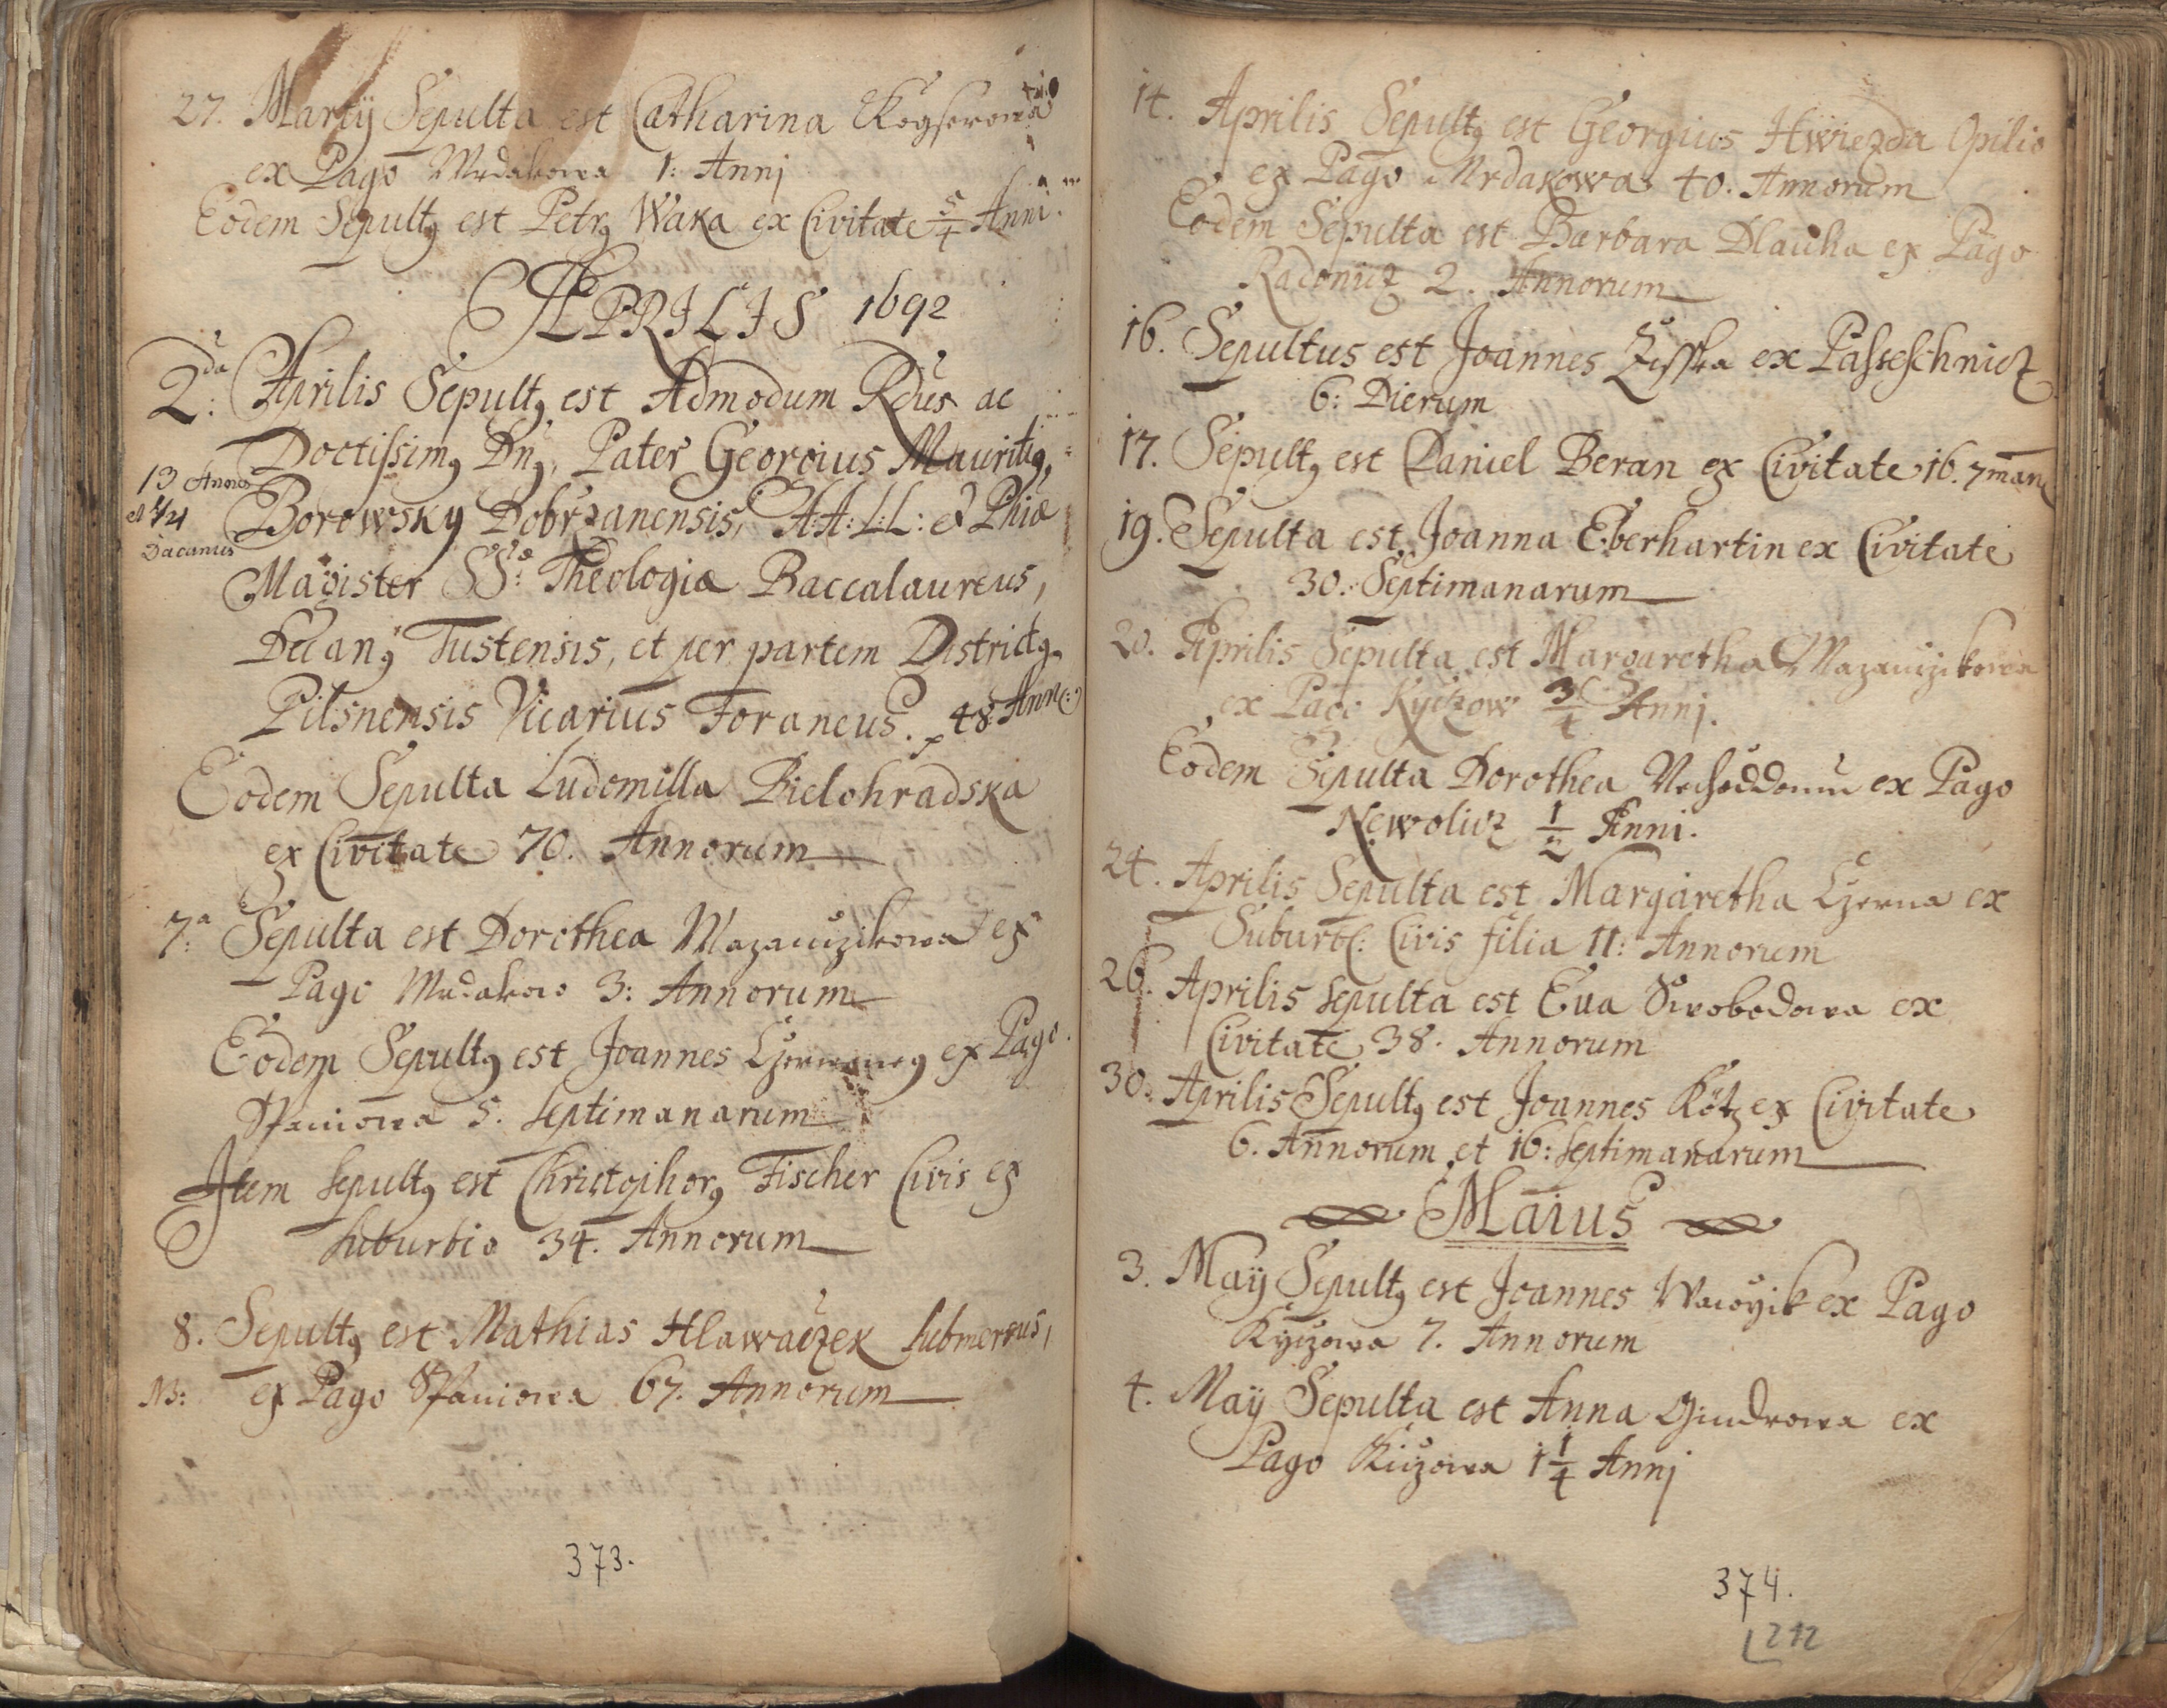 27. Martij Sepulta est Catharina Kogserowa
ex Pago Mrdakowa 1: Annj
Eodem Sepultꝯ est Petrꝯ Waka ex Civitate 5/4 Anni.
APRILIS 1692
2da: Aprilis Sepultꝯ est Admodum Rdus ac
Doctissimꝯ Dnꝯ, Pater Georgius Mauritiꝯ,
13 Annos
Borowsky Dobrzanensis, AA: LL: et Phiæ
et 1/4
Dacanus
Magister SSæ: Theologiæ Baccalaureus,
Decanꝯ Tustensis, et per partem Districtꝯ
Pilsnensis Vicarius Foraneus. 48 Ann:
Eodem Sepulta Ludomilla Bielohradska
ex Civitate 70. Annorum
7a: Sepulta est Dorothea Mazanczikowa ex
Pago Mrdakow 3: Annorum
Eodem Sepultꝯ est Joannes ex Pago
Spaniowa 5. septimanarum
Item sepultꝯ est Christophorꝯ Fischer Civis ex
suburbio 34. Annorum
8. Sepultꝯ est Mathias Hlawaczek submersus,
NB: ex Pago Spaniowa 67. Annorum
373.
14. Aprilis Sepultꝯ est Georgius Hwiezda Opilio
ex Pago Mrdakowa 40. Annorum
Eodem Sepulta est Barbara Dlauha ex Pago
Radonicz 2. Annorum
16. Sepultus est Joannes Zisska ex Passeschnicz
6: Dierum
17. Sepultꝯ est Daniel Beran ex Civitate 16. 7man
19. Sepulta est Joanna Eberhartin ex Civitate
30. Septimanarum
20. Aprilis Sepulta est Margaretha Mazanczikowa
ex Pago Kyczow 3/4 Annj.
Eodem Sepulta Dorothea ex Pago
Newolicz 1/2 Anni.
24. Aprilis Sepulta est Margaretha Czerna ex
Suburb: Civis filia 11: Annorum
26. Aprilis sepulta est Eua Swobodowa ex
Civitate 38. Annorum
30. Aprilis Sepultꝯ est Joannes Kötz ex Civitate
6. Annorum et 16: septimanarum
Maius
3. Maÿ Sepultꝯ est Joannes ex Pago
Kyczowa 7. Annorum
4. Maÿ Sepulta est Anna Gindrowa ex
Pago Kiczowa 1 1/4 Annj
374.
212